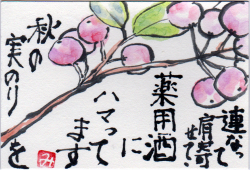 連なって
肩寄せて
秋の
実のりを
薬用酒
に
ハマって
ます
み